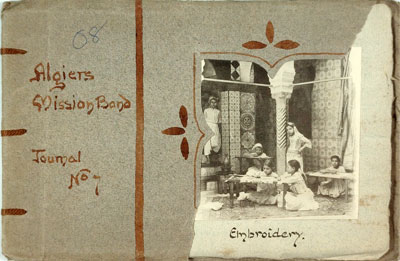 08
Algiers
Mission Band
Journal
No 7
Embroidery.